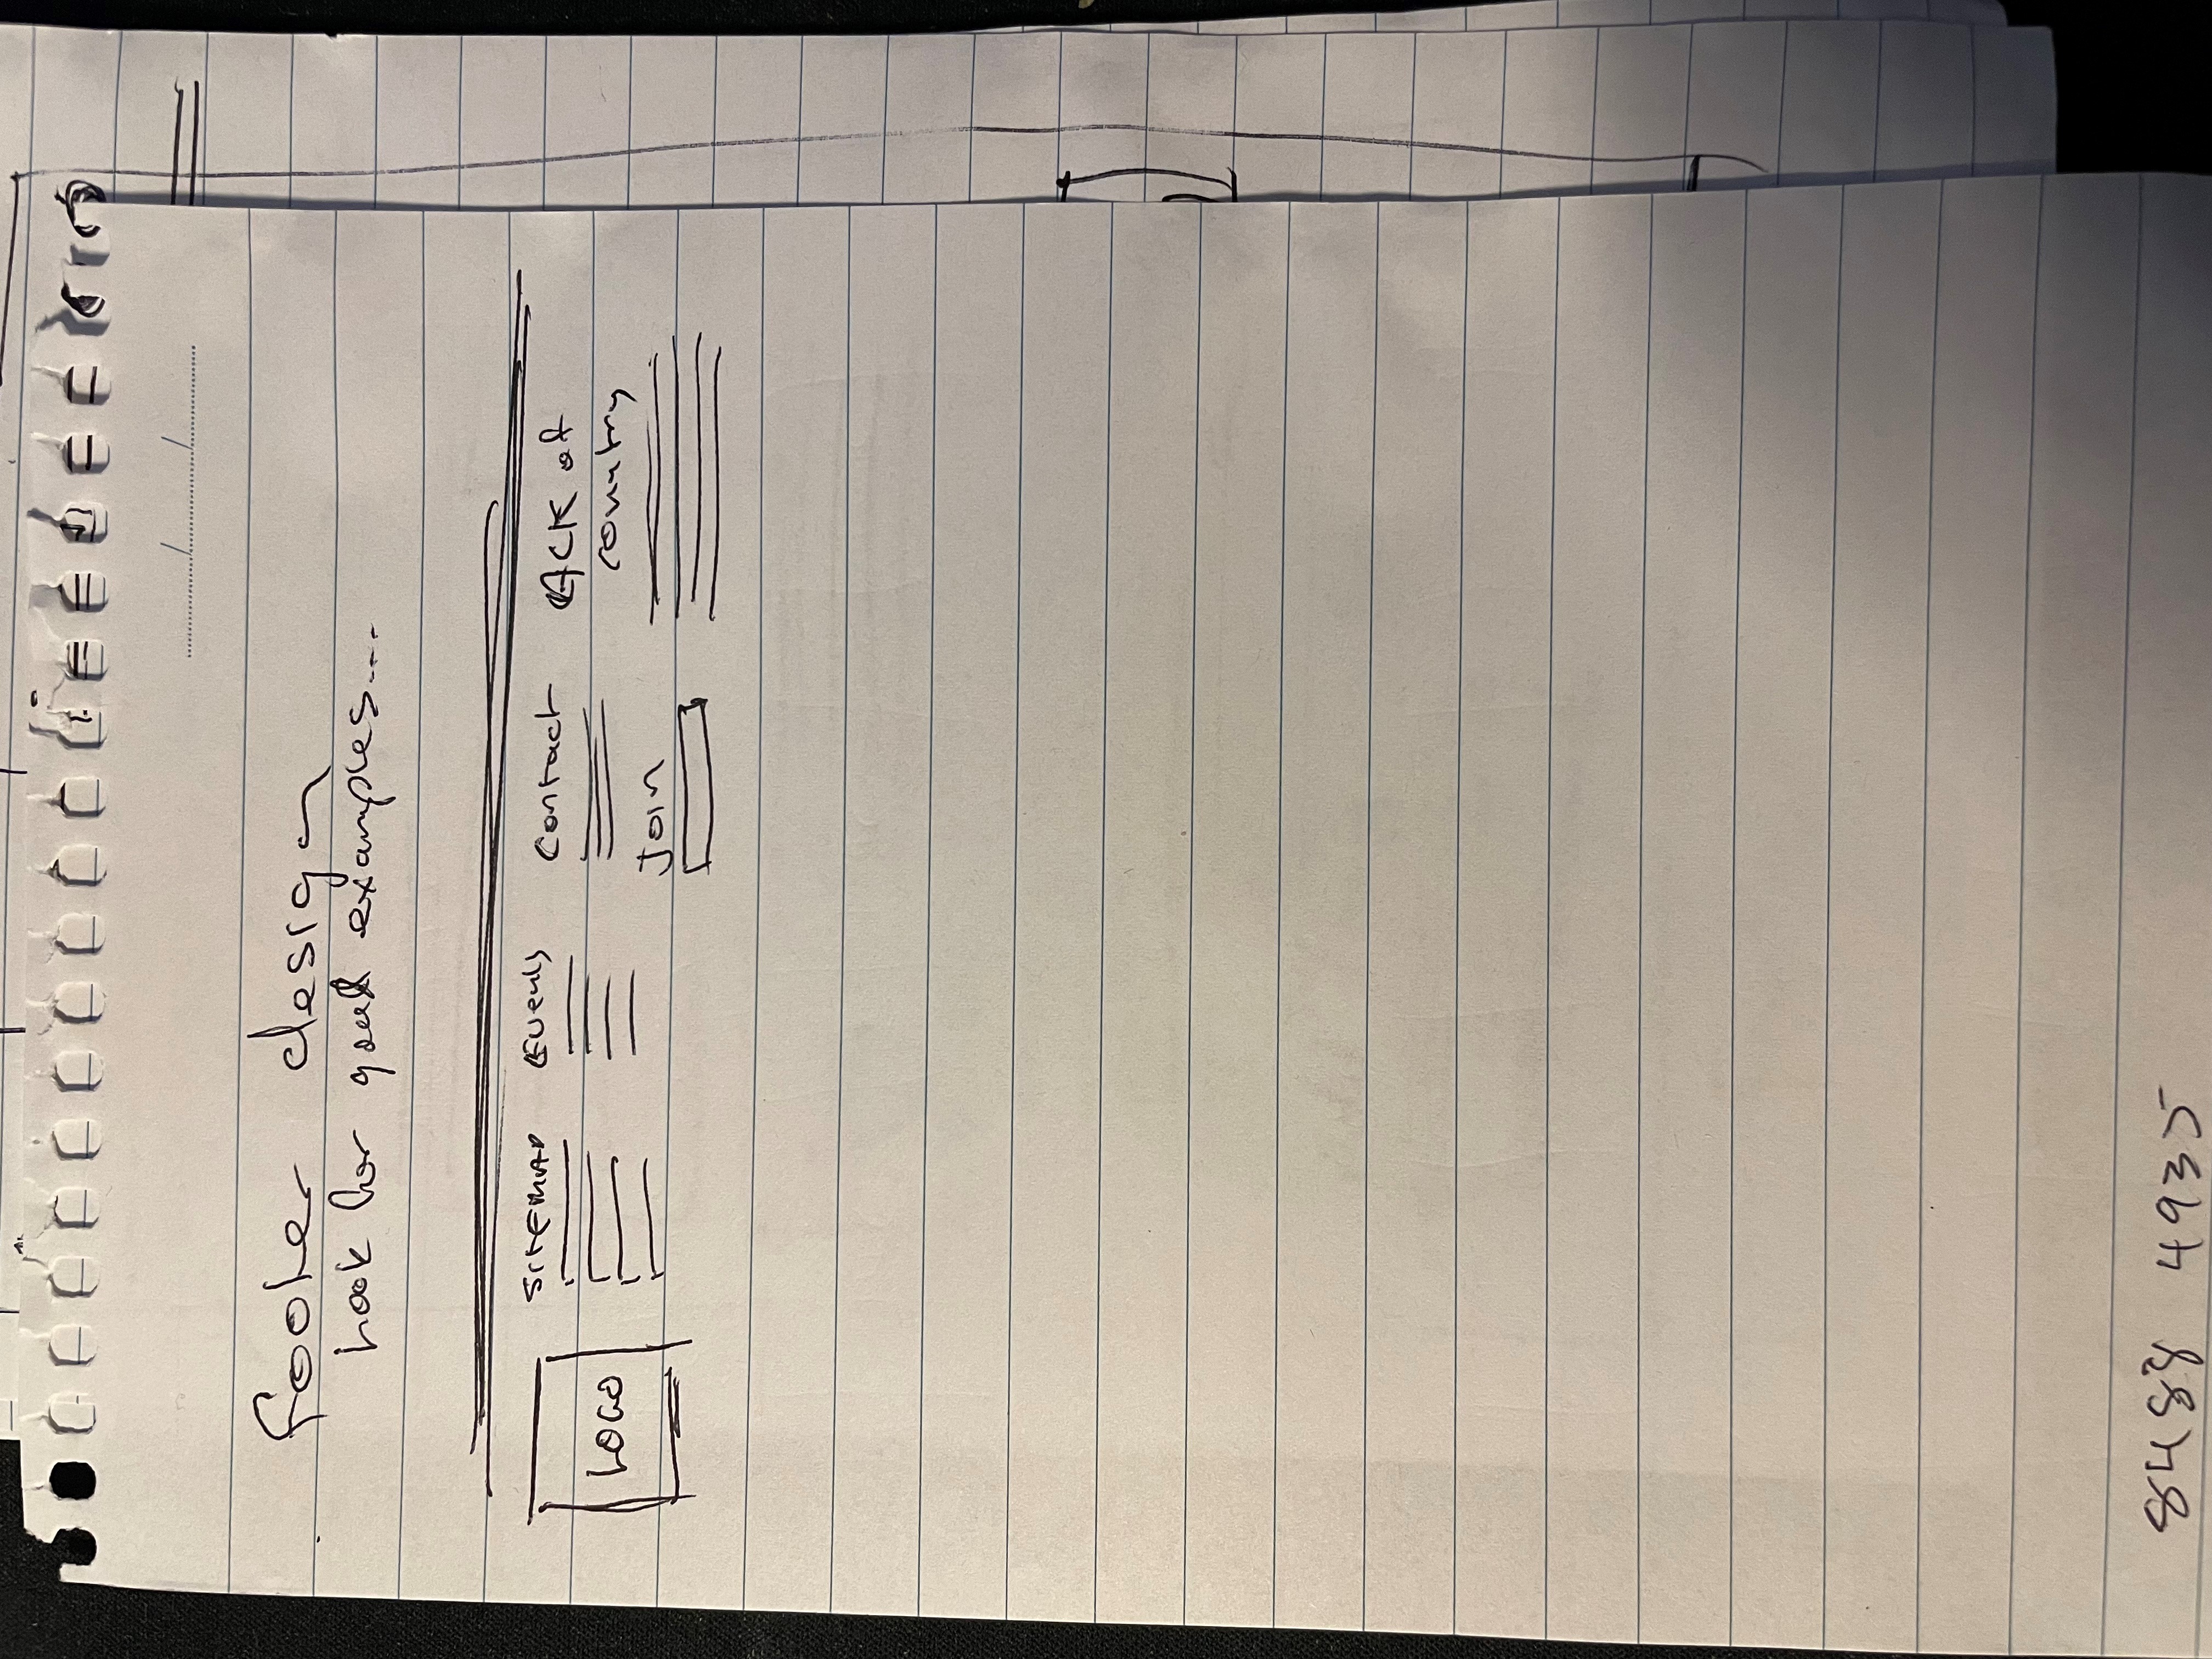 footer design
Look for good examples...
LOGO
SITEMAP
Events
Contact
Join
ACK of
country
8488 4935